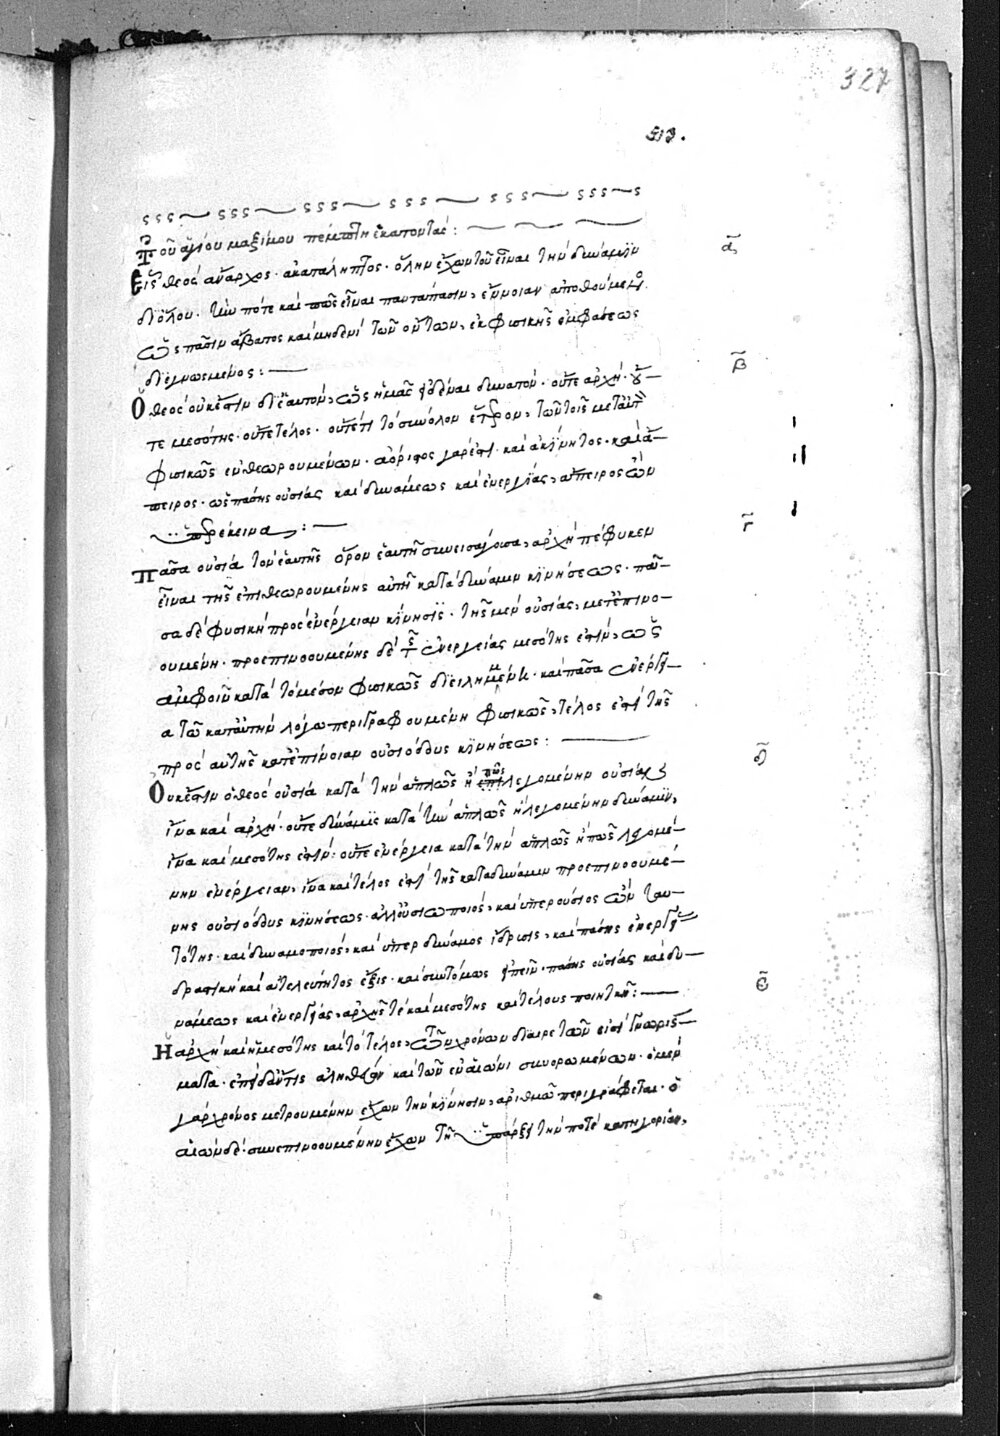 327
513.
Τοῦ ἁγίου μαξίμου πέμπτη ἑκατοντάς:
Εἷς θεός ἄναρχος· ἀκατάληπτος· ὅλην ἔχων τοῦ εἶναι τὴν δύναμϊν
α
δϊόλου· τὴν πότε καὶ πῶς εἶναι παντάπασιν, ἔννοιαν ἀποθούμεν
ὡς πᾶσιν ἄβατος καὶ μηδενί τῶν ὄντων, ἐκ φυσικῆς ἐμφάσεως
διεγνωσμένος:
Ὁ θεός οὐκέστιν δι' ἑαυτόν, ὡς ἡμᾶς εἰδέναι δυνατόν· οὔτε ἀρχή· οὔ–
β
τε μεσότης· οὔτε τέλος· οὔτέ τι τὸ σύνολον ἕτερον, τῶν τοῖς μετ' αὐτὸν
φυσικῶς ἐνθεωρουμένων· ἀόριστος γάρ ἐστι· καὶ ἀκίνητος· καὶ ἄ–
πειρος· ὡς πάσης οὐσίας καὶ δυνάμεως καὶ ἐνεργείας, ἀπείρως ὢν
ὑπερέκεινα:
Πᾶσα οὐσία τὸν ἑαυτῆς ὅρον ἑαυτῇ συνεισάγουσα, ἀρχή πέφυκεν
γ
εἶναι τῆς ἐπιθεωρουμένης αὐτῇ κατὰ δύναμιν κινήσεως· πᾶ–
σα δέ φυσική πρός ἐνέργειαν κίνησις· τῆς μέν οὐσίας, μετεπινο–
ουμένη· προεπινοουμένης δέ τῆς ἐνεργείας μεσότης ἐστίν, ὡς
ἀμφοῖν κατά τὸ μέσον φυσικῶς διειλημμένη· καὶ πᾶσα ἐνέργει–
α τῷ κατ' αὐτήν λόγῳ περιγραφουμένη φυσικῶς, τέλος ἐστί τῆς
πρός αὐτῆς κατ' ἐπίνοιαν οὐσιώδους κινήσεως:
Οὐκέστιν ὁ θεός οὐσία κατά τήν ἁπλῶς ἤ πῶς λεγομένην οὐσίαν
δ
ἵνα καί ἀρχή· οὔτε δύναμις κατά τήν ἁπλῶς ἤ λεγομένην δύναμιν,
ἵνα καί μεσότης ἐστίν· οὔτε ἐνέργεια κατά τήν ἁπλῶς ἤ πῶς λεγομέ–
νην ἐνέργειαν, ἵνα καί τέλος ἐστί τῆς κατά δύναμιν προεπινοουμέ–
νης οὐσιώδους κινήσεως· ἀλλ' οὐσιωποιός, καί ὑπερούσιος ὢν ταυ–
τότης· καί δυναμοποιός, καί ὑπερ δύναμος ἵδρυσις, καί πάσης ἐνεργείας
δραστική καί ἀτελεύτητος ἕξις· καί συντόμως εἰπεῖν· πάσης οὐσίας καί δυ–
νάμεως καί ἐνεργείας, ἀρχῆς τέ καί μεσότης καί τέλους ποιητική:
Ἡ ἀρχή καί ἡ μεσότης καί τό τέλος, τῶν χρόνῳ διαιρετῶν εἰσί γνωρίσ–
ε
ματα· εἴποι δ' ἄν τις ἀληθεύων καί τῶν ἐν αἰῶνι συνορωμένων· ὁ μέν
γάρ χρόνος μετρουμένην ἔχων τήν κίνησιν, ἀριθμῷ περιγράφεται· ὁ
αἰών δέ· συνεπινοουμένην ἔχων τῇ ὑπάρξει τήν ποτέ κατηγορίαν,